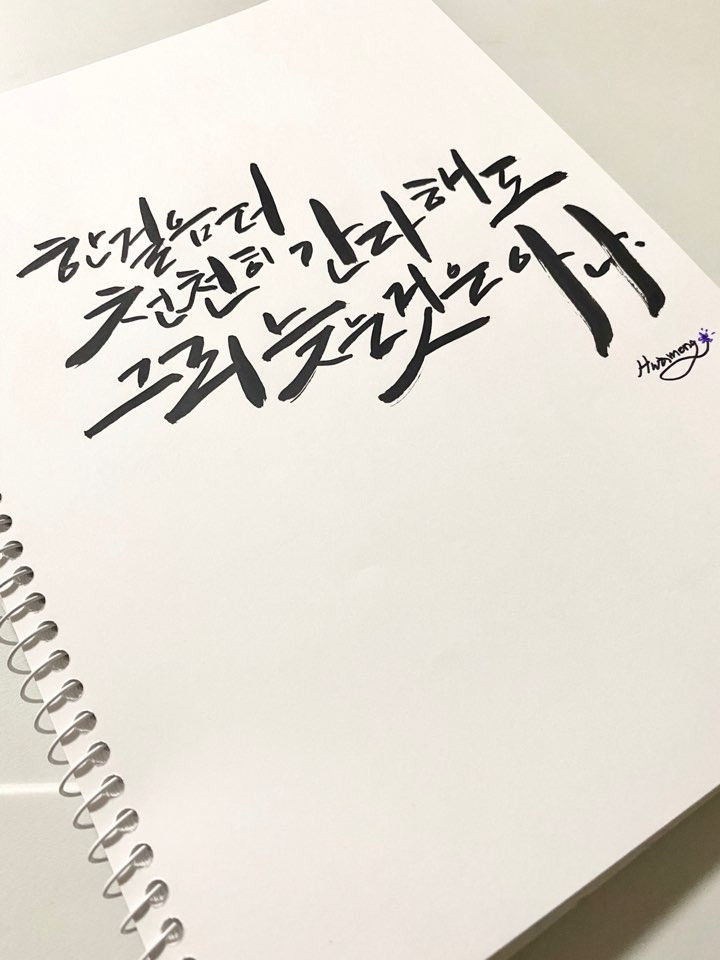 한걸음 더
천천히 간다 해도
그리 늦는 것은 아냐.
Hwamong